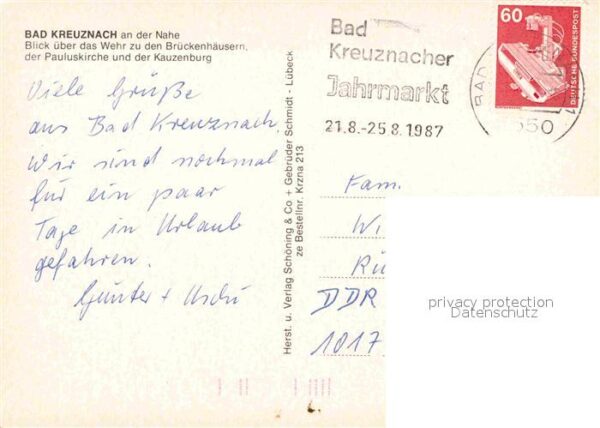 BAD KREUZNACH an der Nahe
Blick über das Wehr zu den Brückenhäusern,
der Pauluskirche und der Kauzenburg
Viele Grüße
aus Bad Kreuznach.
Wir sind nochmal
für ein paar
Tage in Urlaub
gefahren.
Günter + Uschi
Herst. u. Verlag Schöning & Co + Gebrüder Schmidt - Lübeck
ze Bestellnr. Krzna 213
Bad
Kreuznacher
Jahrmarkt
21.8.-25.8.1987
60
DEUTSCHE BUNDESPOST
BAD
550
1
Fam.
Wi
Rü
DDR
1017
privacy protection
Datenschutz